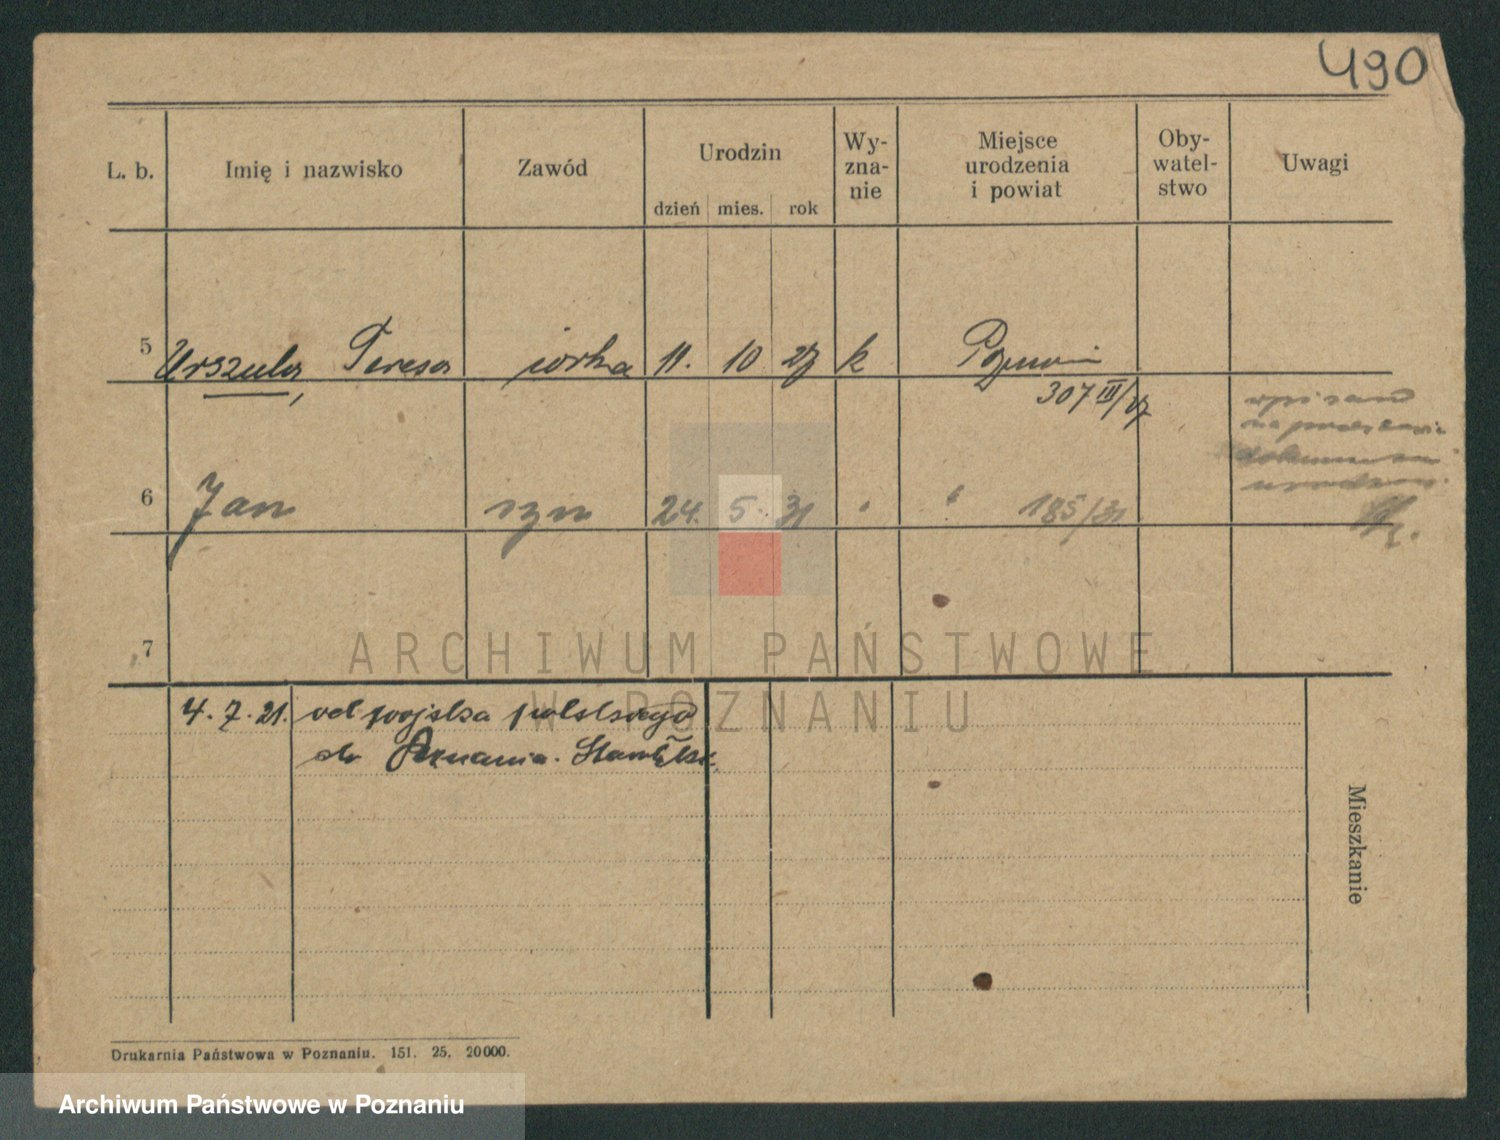 490
L. b. Imię i nazwisko Zawód Urodzin dzień mies. rok Wy- zna- nie Miejsce urodzenia i powiat Oby- watel- stwo Uwagi
5 Urszula, Teresa córka 11. 10 27 k Poznań
307 III/27
6 Jan syn 24. 5. 31 " " 185/31
wpisano
na podstawie
dokumentu
urodzenia.
7
ARCHIWUM PAŃSTWOWE
W POZNANIU
4. 7. 21. od wojska polskiego
do Poznania.
Mieszkanie
Drukarnia Państwowa w Poznaniu. 151. 25. 20000.
Archiwum Państwowe w Poznaniu